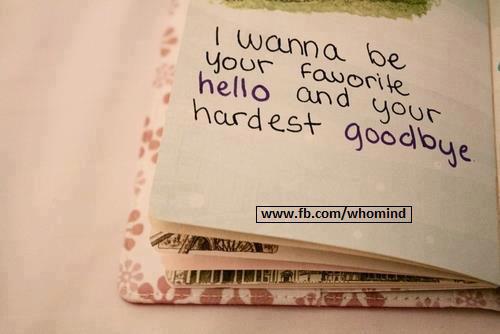 I wanna be
your favorite
hello and your
hardest goodbye
www.fb.com/whomind